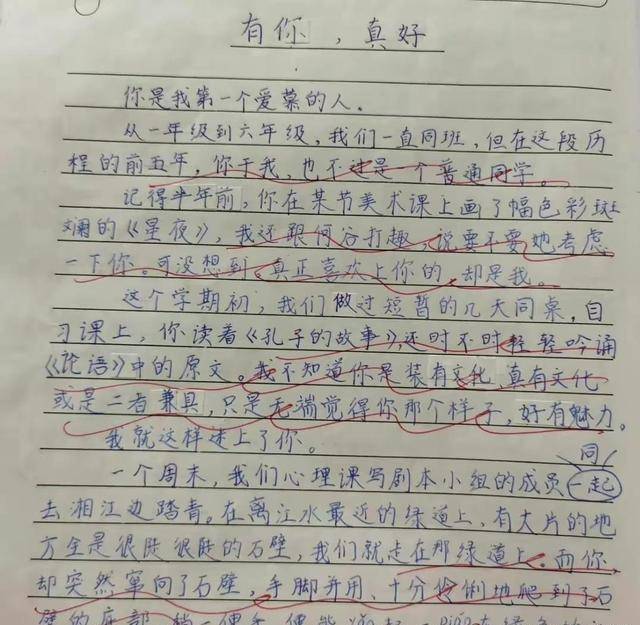 有你，真好
你是我第一个爱慕的人．
从一年级到六年级，我们一直同班，但在这段历
程的前五年，你于我，也不过是一个普通同学。
记得半年前，你在某节美术课上画了幅色彩斑
斓的《星夜》，我还跟何谷打趣，说要不要她考虑
一下你。可没想到，真正喜欢上你的，却是我。
这个学期初，我们做过短暂的几天同桌，自
习课上，你读着《孔子的故事》，还时不时轻轻吟诵
《论语》中的原文。我不知道你是装有文化，真有文化
或是二者兼具，只是无端觉得你那个样子，好有魅力。
我就这样迷上了你。
同
一个周末，我们心理课写剧本小组的成员一起
去湘江边踏青。在离江水最近的绿道上，有大片的地
方全是很陡很陡的石壁，我们就走在那绿道上。而你，
却突然窜向了石壁，手脚并用、十分伶俐地爬到了石
壁的底部